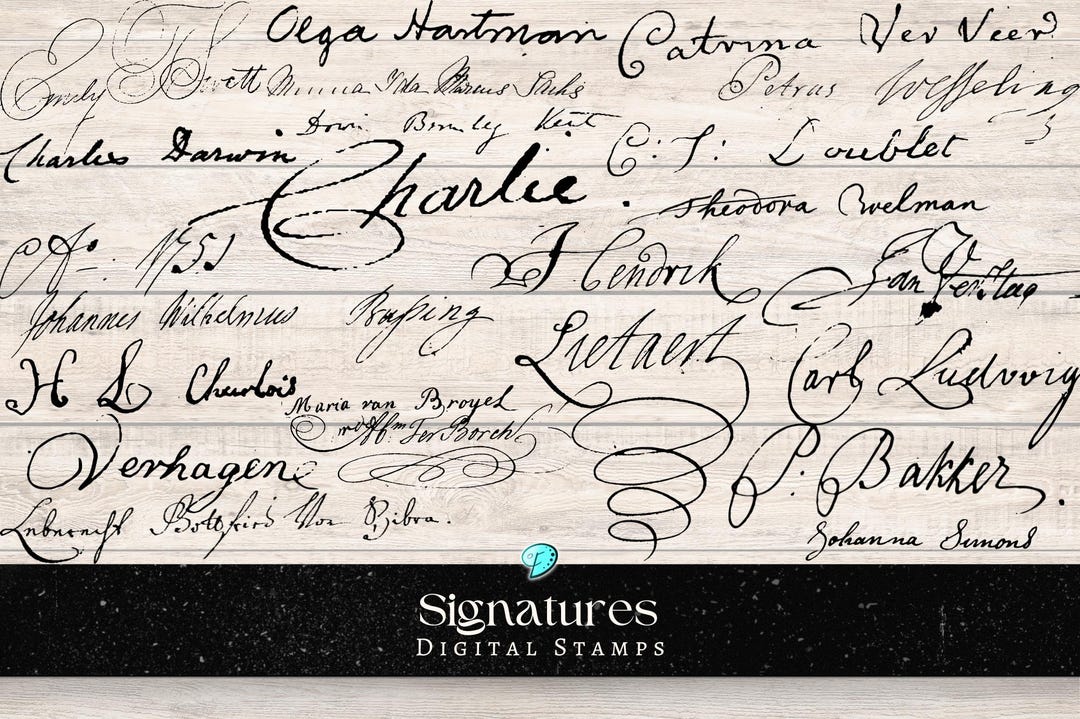 Olga Hartman
Catrina Ver Veer
Emely
Minna Ida Marcus Sachs
Petrus Wesseling
Kent
Charles Darwin
Charlie.
C: J: Doublet
Theodora Welman
Ao: 1751
J Hendrik
Jan Verstag
Johannes Wilhelmus Bassing
Lietaert
Carl Ludwig
H L Charlois
Maria van Broyel
Ter Borch
Verhagen
P. Bakker.
Lebrecht Von Bibra.
Johanna Simons
Signatures
Digital Stamps